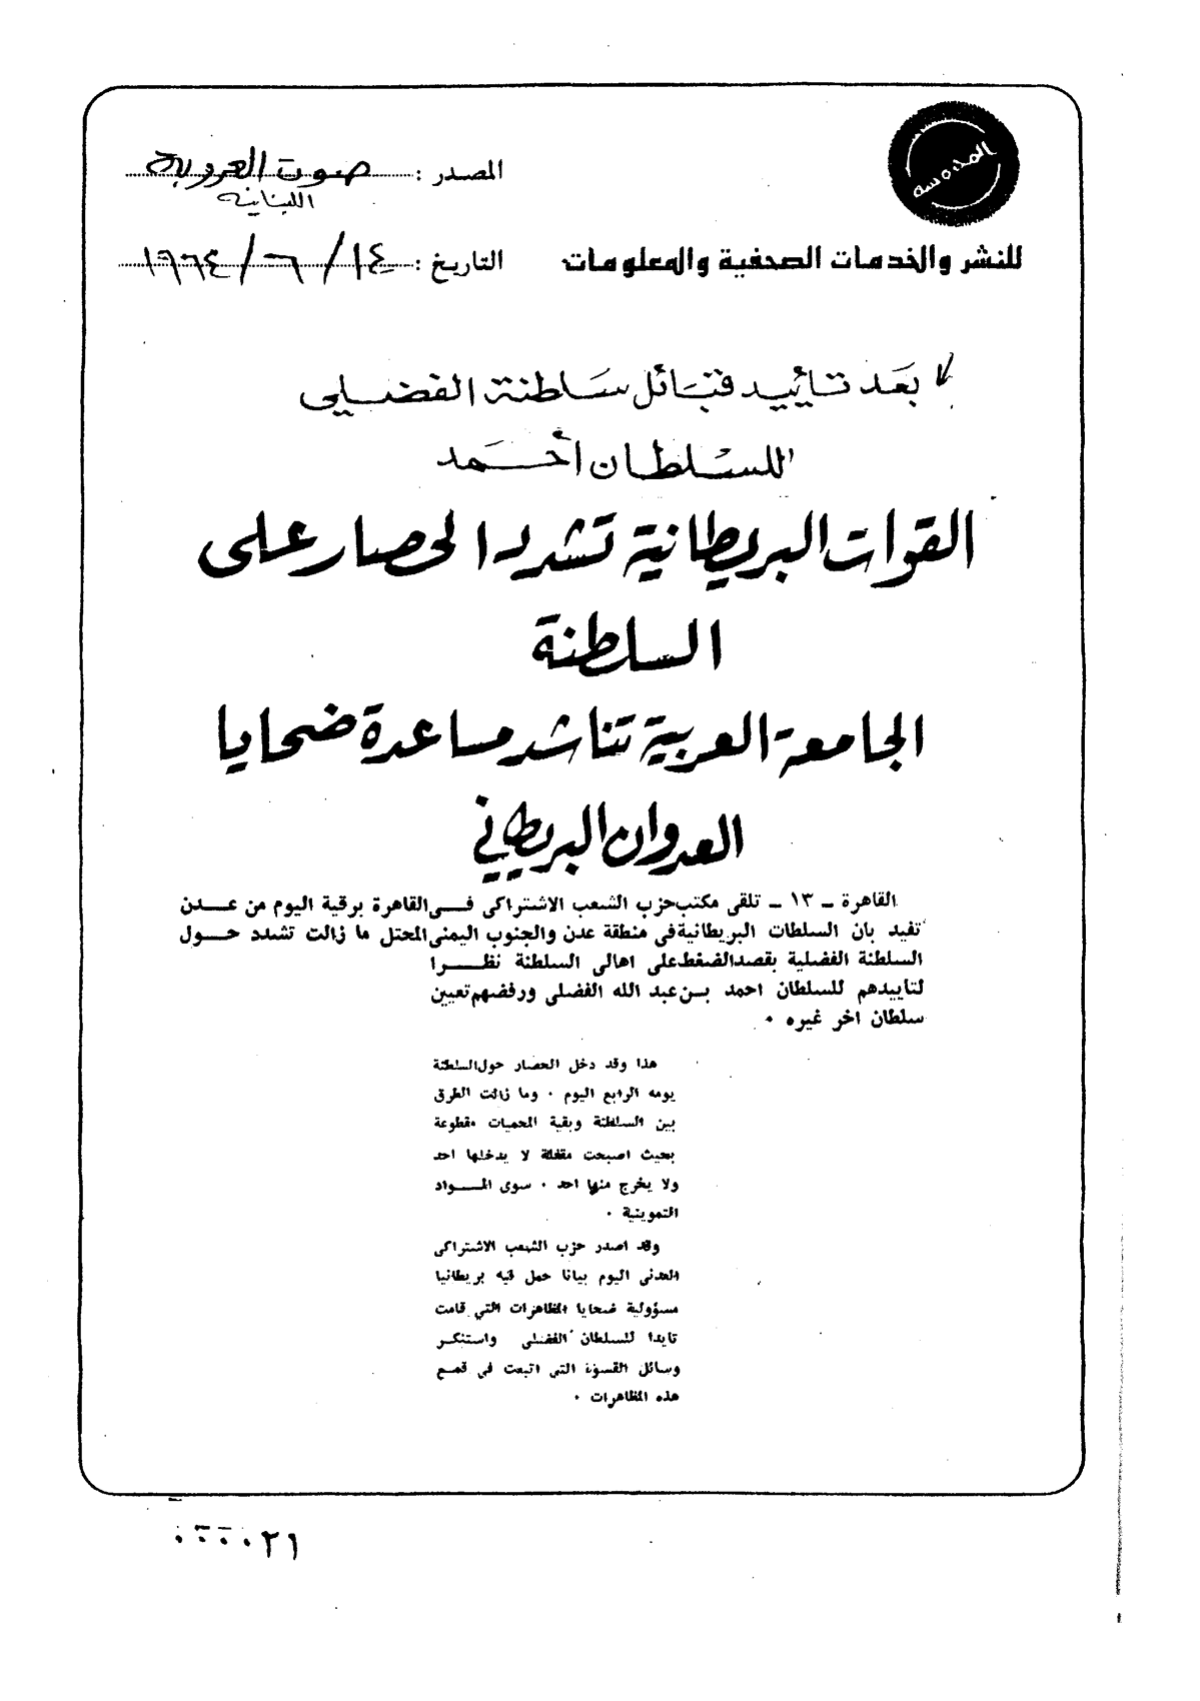 المدوسه
المصدر : صوت العروبة
اللبنانية
للنشر والخدمات الصحفية والمعلومات
التاريخ : ١٤/٦/١٩٦٤
بعد تأييد قبائل سلطنة الفضلي
للسلطان أحمد
القوات البريطانية تشدد الحصار على
السلطنة
الجامعة العربية تناشد مساعدة ضحايا
العدوان البريطاني
القاهرة – ١٣ – تلقى مكتب حزب الشعب الاشتراكى فى القاهرة برقية اليوم من عدن
تفيد بان السلطات البريطانية فى منطقة عدن والجنوب اليمنى المحتل ما زالت تشدد حول
السلطنة الفضلية بقصد الضغط على اهالى السلطنة نظرا
لتاييدهم للسلطان احمد بن عبد الله الفضلى ورفضهم تعيين
سلطان اخر غيره ٠
هذا وقد دخل الحصار حول السلطنة
يومه الرابع اليوم ٠ وما زالت الطرق
بين السلطنة وبقية المحميات مقطوعة
بحيث اصبحت مقفلة لا يدخلها احد
ولا يخرج منها احد ٠ سوى المواد
التموينية ٠
وقد اصدر حزب الشعب الاشتراكى
العدنى اليوم بيانا حمل فيه بريطانيا
مسؤولية ضحايا المظاهرات التي قامت
تايدا للسلطان الفضلى واستنكر
وسائل القسوة التى اتبعت فى قمع
هذه المظاهرات ٠
٠٠٠٠٢١